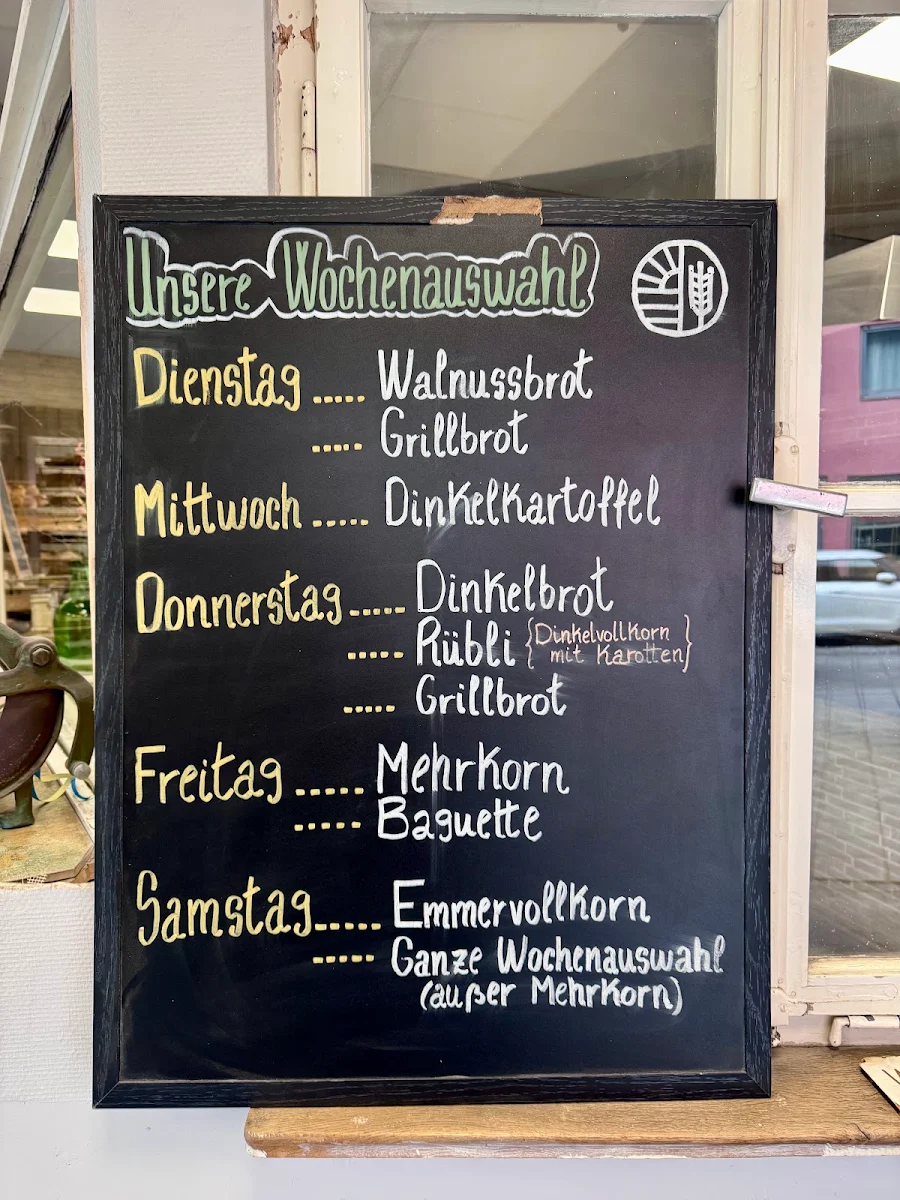 Unsere Wochenauswahl
Dienstag ..... Walnussbrot
..... Grillbrot
Mittwoch ..... Dinkelkartoffel
Donnerstag ..... Dinkelbrot
..... Rübli {Dinkelvollkorn
mit Karotten}
..... Grillbrot
Freitag ..... Mehrkorn
..... Baguette
Samstag ..... Emmervollkorn
..... Ganze Wochenauswahl
(außer Mehrkorn)